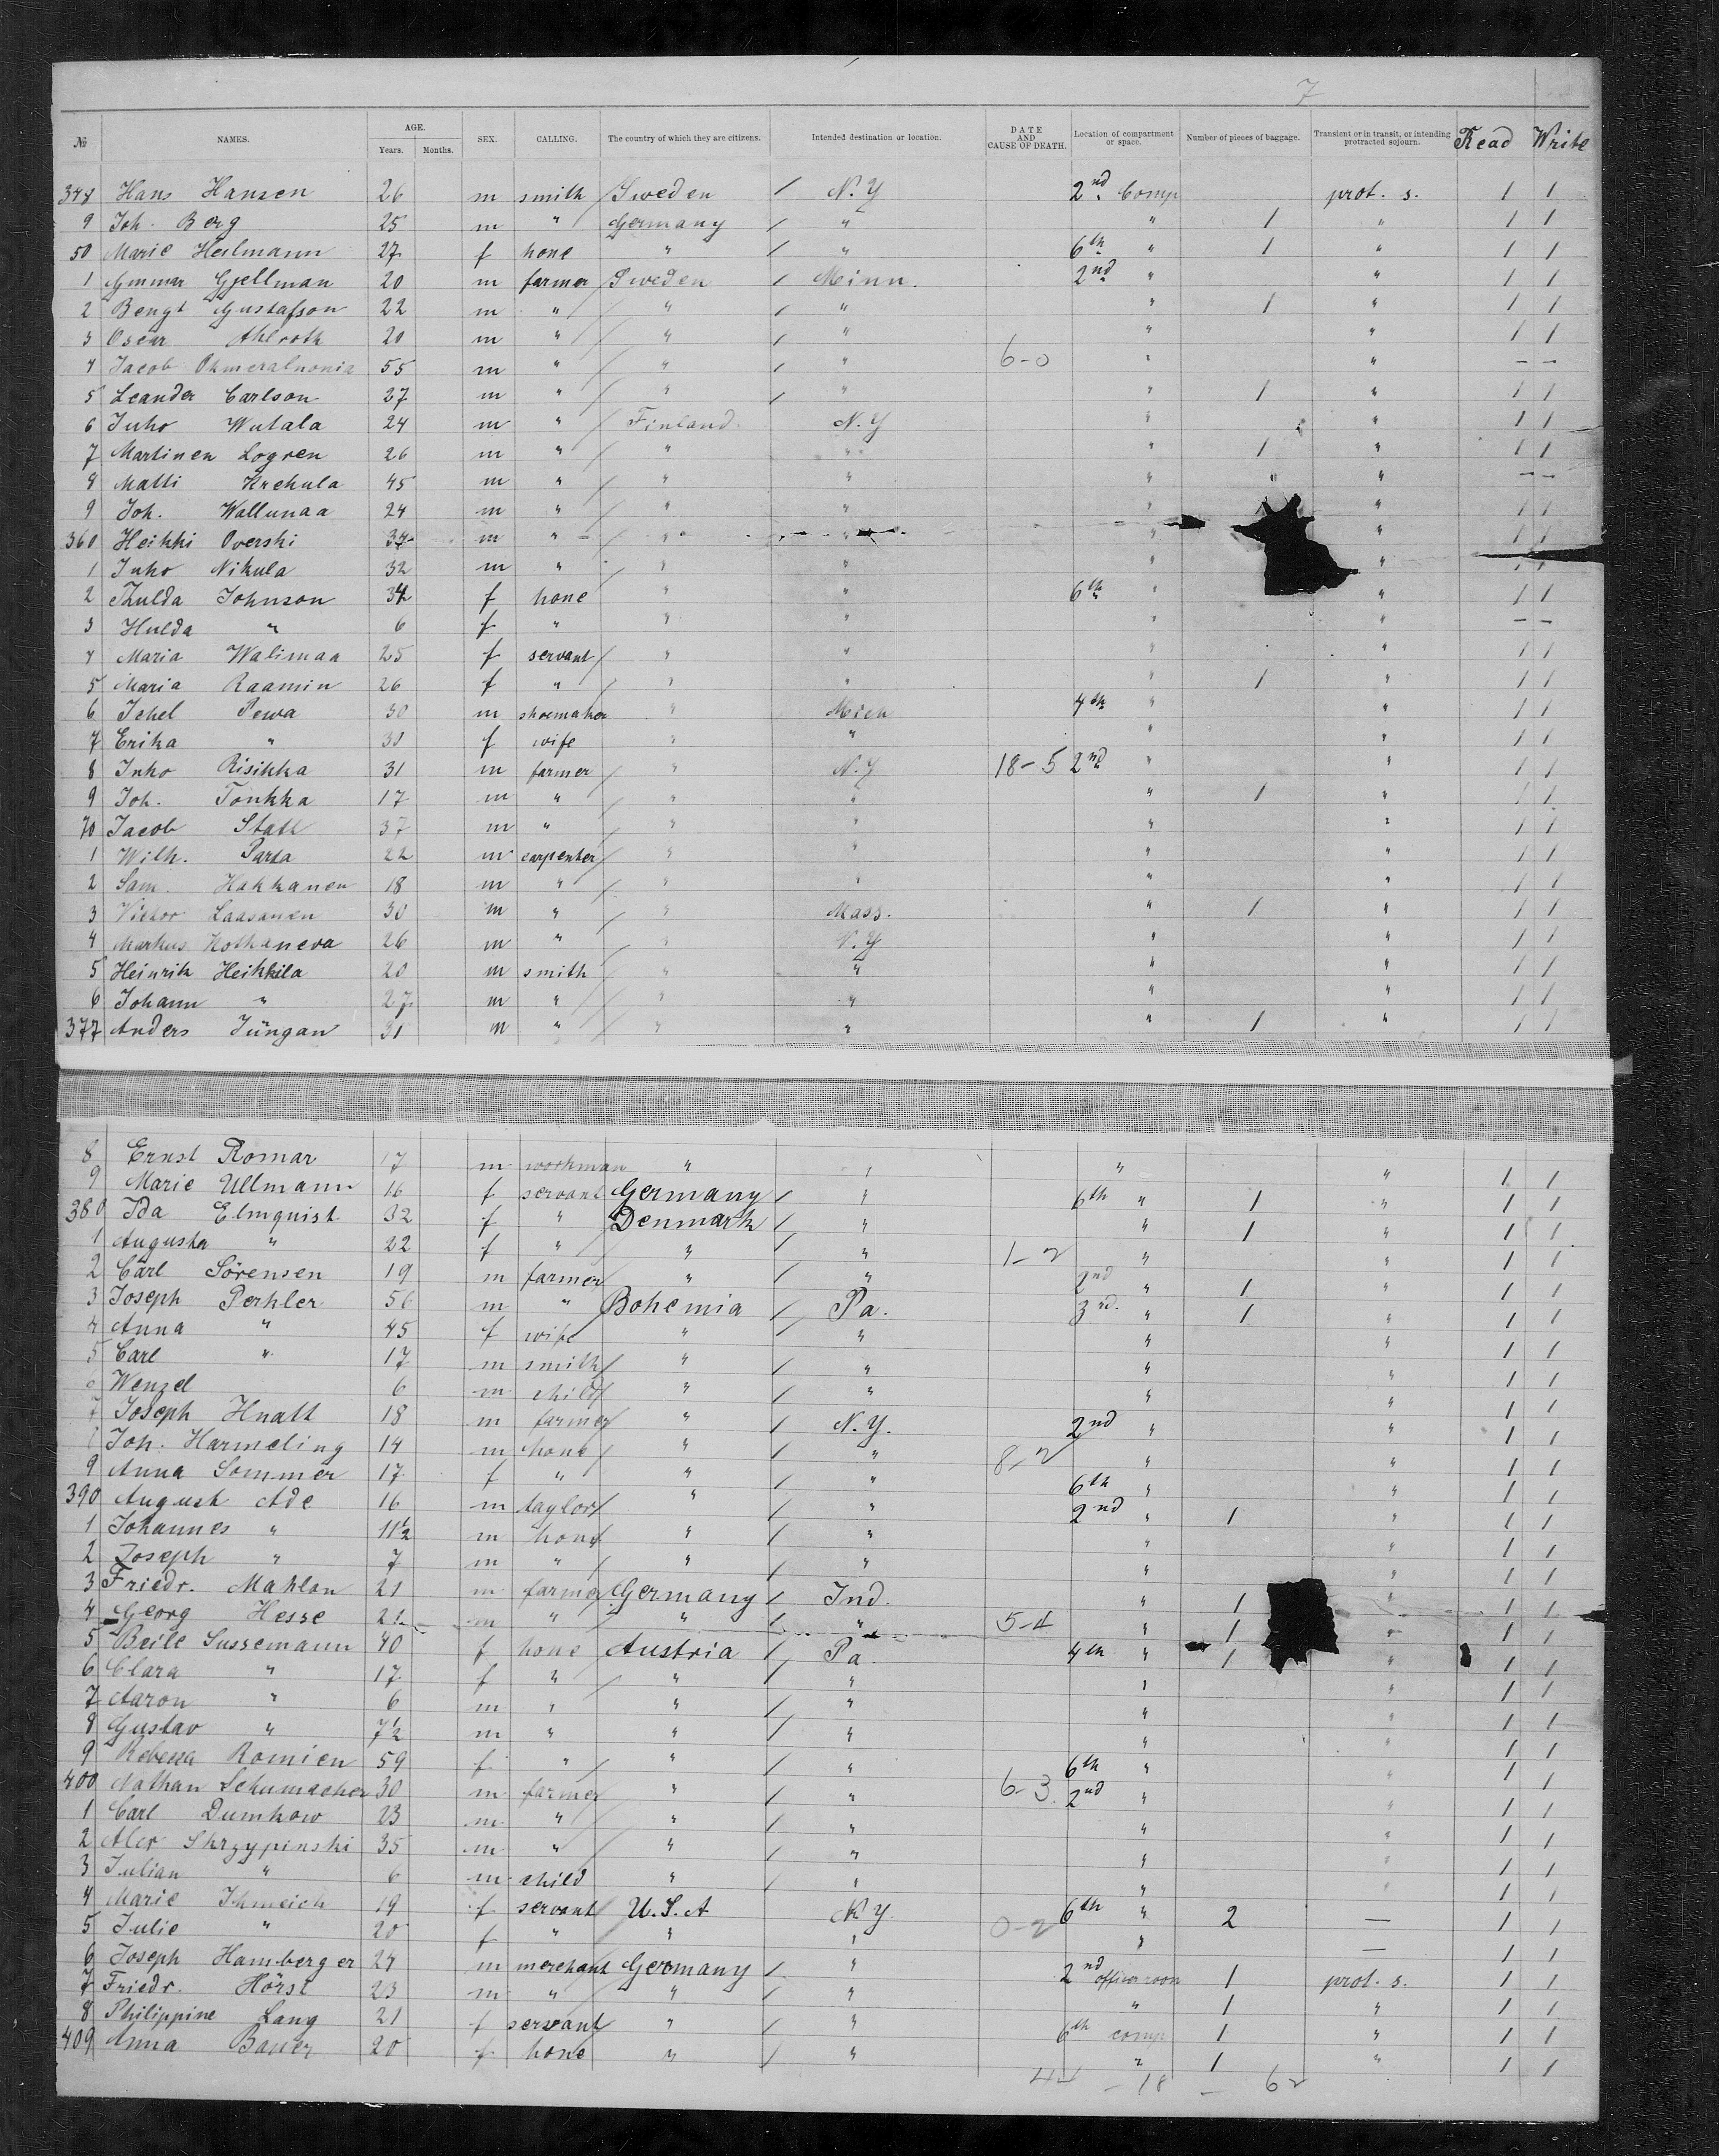 7
№ NAMES. AGE. Years. Months. SEX. CALLING. The country of which they are citizens. Intended destination or location. DATE AND CAUSE OF DEATH. Location of compartment or space. Number of pieces of baggage. Transient or in transit, or intending protracted sojourn. Read Write
348 Hans Hansen 26 m smith Sweden / N.Y 2nd Comp prot. s. 1 1
9 Joh. Berg 25 m " Germany / " " 1 " 1 1
50 Marie Heilmann 27 f none " / " 6th " 1 " 1 1
1 Gunnar Gjellman 20 m farmer Sweden / Minn. 2nd " " 1 1
2 Bengt Gustafson 22 m " " / " " 1 " 1 1
3 Oscar Ahlroth 20 m " " / " " " 1 1
4 Jacob 55 m " " / " 6-0 " " – –
5 Leander Carlson 27 m " " / " " 1 " 1 1
6 Juho Wutala 24 m " Finland N.Y " " 1 1
7 Martinen Logren 26 m " " " " 1 " 1 1
8 Matti Krekula 45 m " " " " " – –
9 Joh. Wallunaa 24 m " " " " " 1 1
360 Heikki Overski 34 m " " " " " 1 1
1 Juho Nikula 32 m " " " " " 1 1
2 Thulda Johnson 34 f none " " 6th " " 1 1
3 Hulda " 6 f " " " " " – –
4 Maria Walimaa 25 f servant " " " " 1 1
5 Maria Raamin 26 f " " " " 1 " 1 1
6 Ichel Pewa 30 m shoemaker " Mich 4th " " 1 1
7 Erika " 30 f wife " " " " 1 1
8 Juho Risikka 31 m farmer " N.Y 18-5 2nd " " 1 1
9 Joh. Tonkka 17 m " " " " 1 " 1 1
70 Jacob Stall 37 m " " " " " 1 1
1 Wilh. Parta 22 m carpenter " " " " 1 1
2 Sam. Hakkanen 18 m " " " " " 1 1
3 Victor Laasanen 30 m " " Mass. " 1 " 1 1
4 Markus Kothaneva 26 m " " N.Y " " 1 1
5 Heinrik Heikkila 20 m smith " " " " 1 1
6 Johann " 27 m " " " " " 1 1
377 Anders Jüngan 31 m " " " " 1 " 1 1
8 Ernst Romar 17 m workman " " " " 1 1
9 Marie Ullmann 16 f servant Germany / " 6th " 1 " 1 1
380 Ida Elmquist 32 f " Denmark / " " 1 " 1 1
1 Augusta " 22 f " " / " 1-2 " " 1 1
2 Carl Sörensen 19 m farmer " / " 2nd " 1 " 1 1
3 Joseph Perkler 56 m " Bohemia / Pa. 3rd. " 1 " 1 1
4 Anna " 45 f wife " / " " " 1 1
5 Carl " 17 m smith " / " " " 1 1
6 Wenzel 6 m child " / " " " 1 1
7 Joseph Hnatt 18 m farmer " / N.Y. 2nd " " 1 1
8 Joh. Harmeling 14 m none " / " 8-2 " " 1 1
9 Anna Sommer 17 f " " / " 6th " " 1 1
390 August Ade 16 m taylor " / " 2nd " 1 " 1 1
1 Johannes " 11½ m none " / " " " 1 1
2 Joseph " 7 m " " / " " " 1 1
3 Friedr. Mahlon 21 m farmer Germany / Ind. " 1 " 1 1
4 Georg Hesse 21 m " " / " 5-4 " 1 " 1 1
5 Beile Sussemann 40 f none Austria / Pa. 4th " 1 " 1 1
6 Clara " 17 f " " / " " " 1 1
7 Aaron " 6 m " " / " " " 1 1
8 Gustav " 7½ m " " / " " " 1 1
9 Rebecca Romien 59 f " " / " 6th " " 1 1
400 Nathan Schumacher 30 m farmer " / " 6-3 2nd " " 1 1
1 Carl Dumkow 23 m " " / " " " 1 1
2 Alex Skrzypinski 35 m " " / " " " 1 1
3 Julian " 6 m child " / " " " 1 1
4 Marie Ihmeich 19 f servant U.S.A N.Y. 6th " 2 — 1 1
5 Julie " 20 f " " " 0-2 " — 1 1
6 Joseph Hamberger 24 m merchant Germany / " 2nd officer room 1 prot. s. 1 1
7 Friedr. Hörst 23 m " " / " " 1 " 1 1
8 Philippine Lang 21 f servant " / " 6th comp 1 " 1 1
409 Anna Bauer 20 f none " / " " 1 " 1 1
44 – 18 – 62